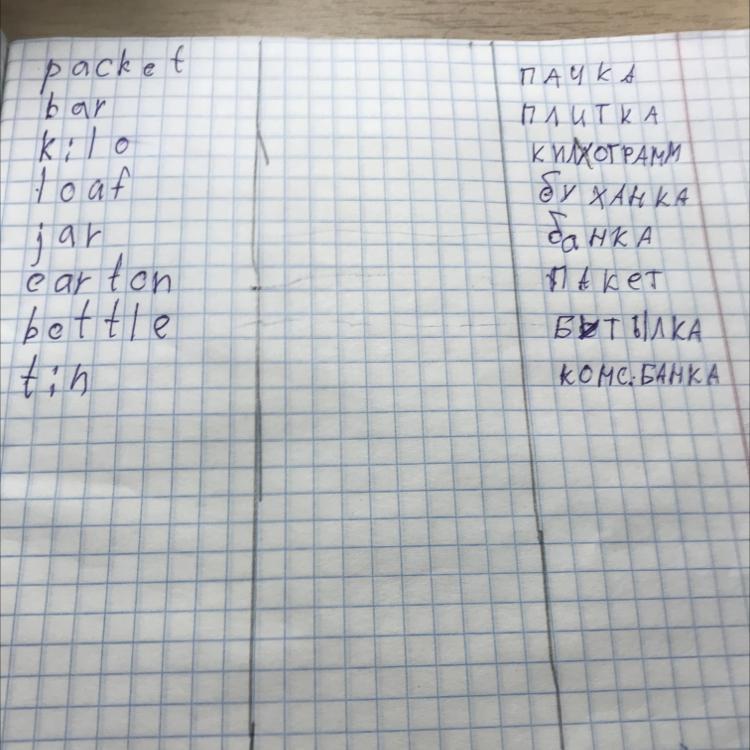 packet ПАЧКА
bar ПЛИТКА
kilo КИЛОГРАММ
loaf бУХАНКА
jar баНКА
carton ПАКеТ
bottle БУТЫЛКА
tin КОНС.БАНКА